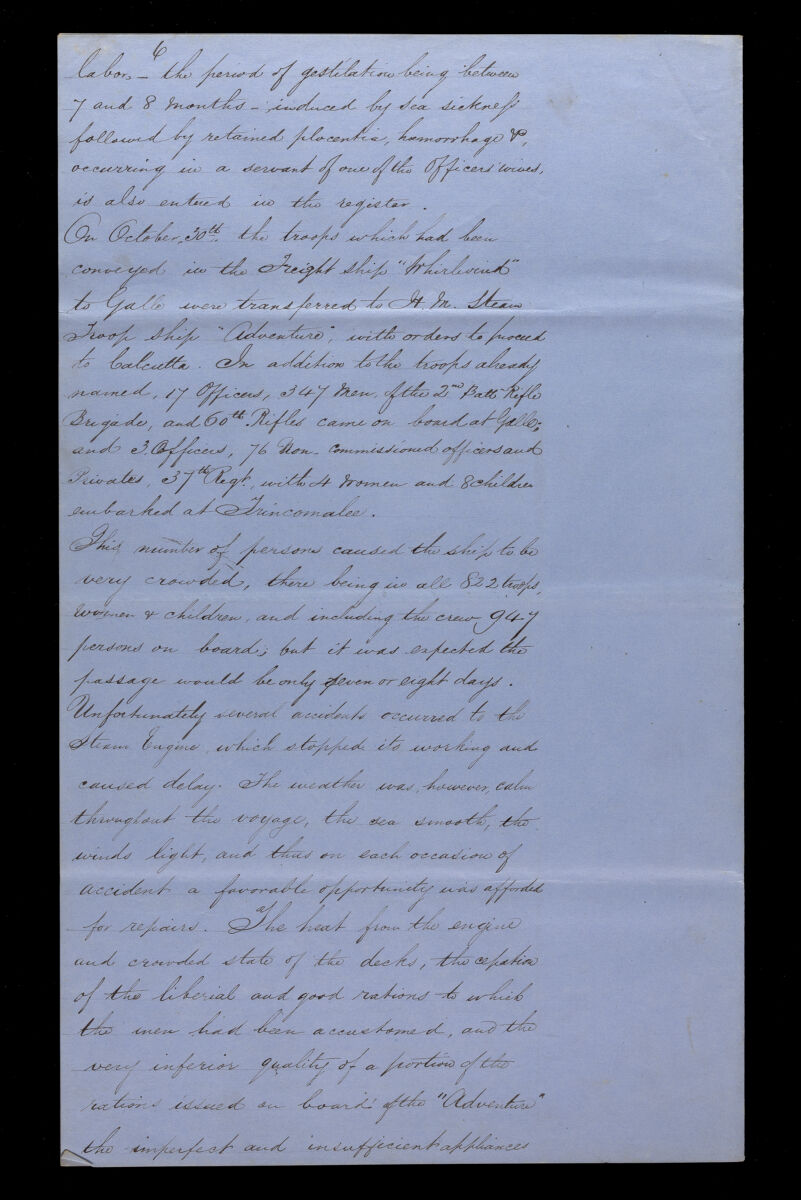 6
labor – the period of gestilation being between
7 and 8 months – induced by sea sickness
followed by retained placentia, hamorrhage &c,
occurring in a servant of one of the Officers wives,
is also entered in the register.
On October, 30th. the troops which had been
conveyed in the Freight ship "Whirlwind"
to Galle were transferred to H. M. Steam
Troop ship "Adventure", with orders to proceed
to Calcutta. In addition to the troops already
named, 17 Officers, 347 Men of the 2nd Batt Rifle
Brigade, and 60th. Rifles came on board at Galle;
and 3 Officers, 76 Non-commissioned officers and
Privates, 37th Regt., with 4 women and 8 children
embarked at Trincomalee.
This number of persons caused the ship to be
very crowded, there being in all 822 troops,
women & children, and including the crew 947
persons on board; but it was expected the
passage would be only seven or eight days.
Unfortunately several accidents occurred to the
Steam Engine, which stopped its working and
caused delay. The weather was, however, calm
throughout the voyage, the sea smooth, the
winds light, and thus on each occasion of
accident a favorable opportunity was afforded
for repairs. The heat from the engine
and crowded state of the decks, the cepation
of the liberial and good rations to which
the men had been accustomed, and the
very inferior quality of a portion of the
rations issued on board of the "Adventure"
the imperfect and insufficient appliances